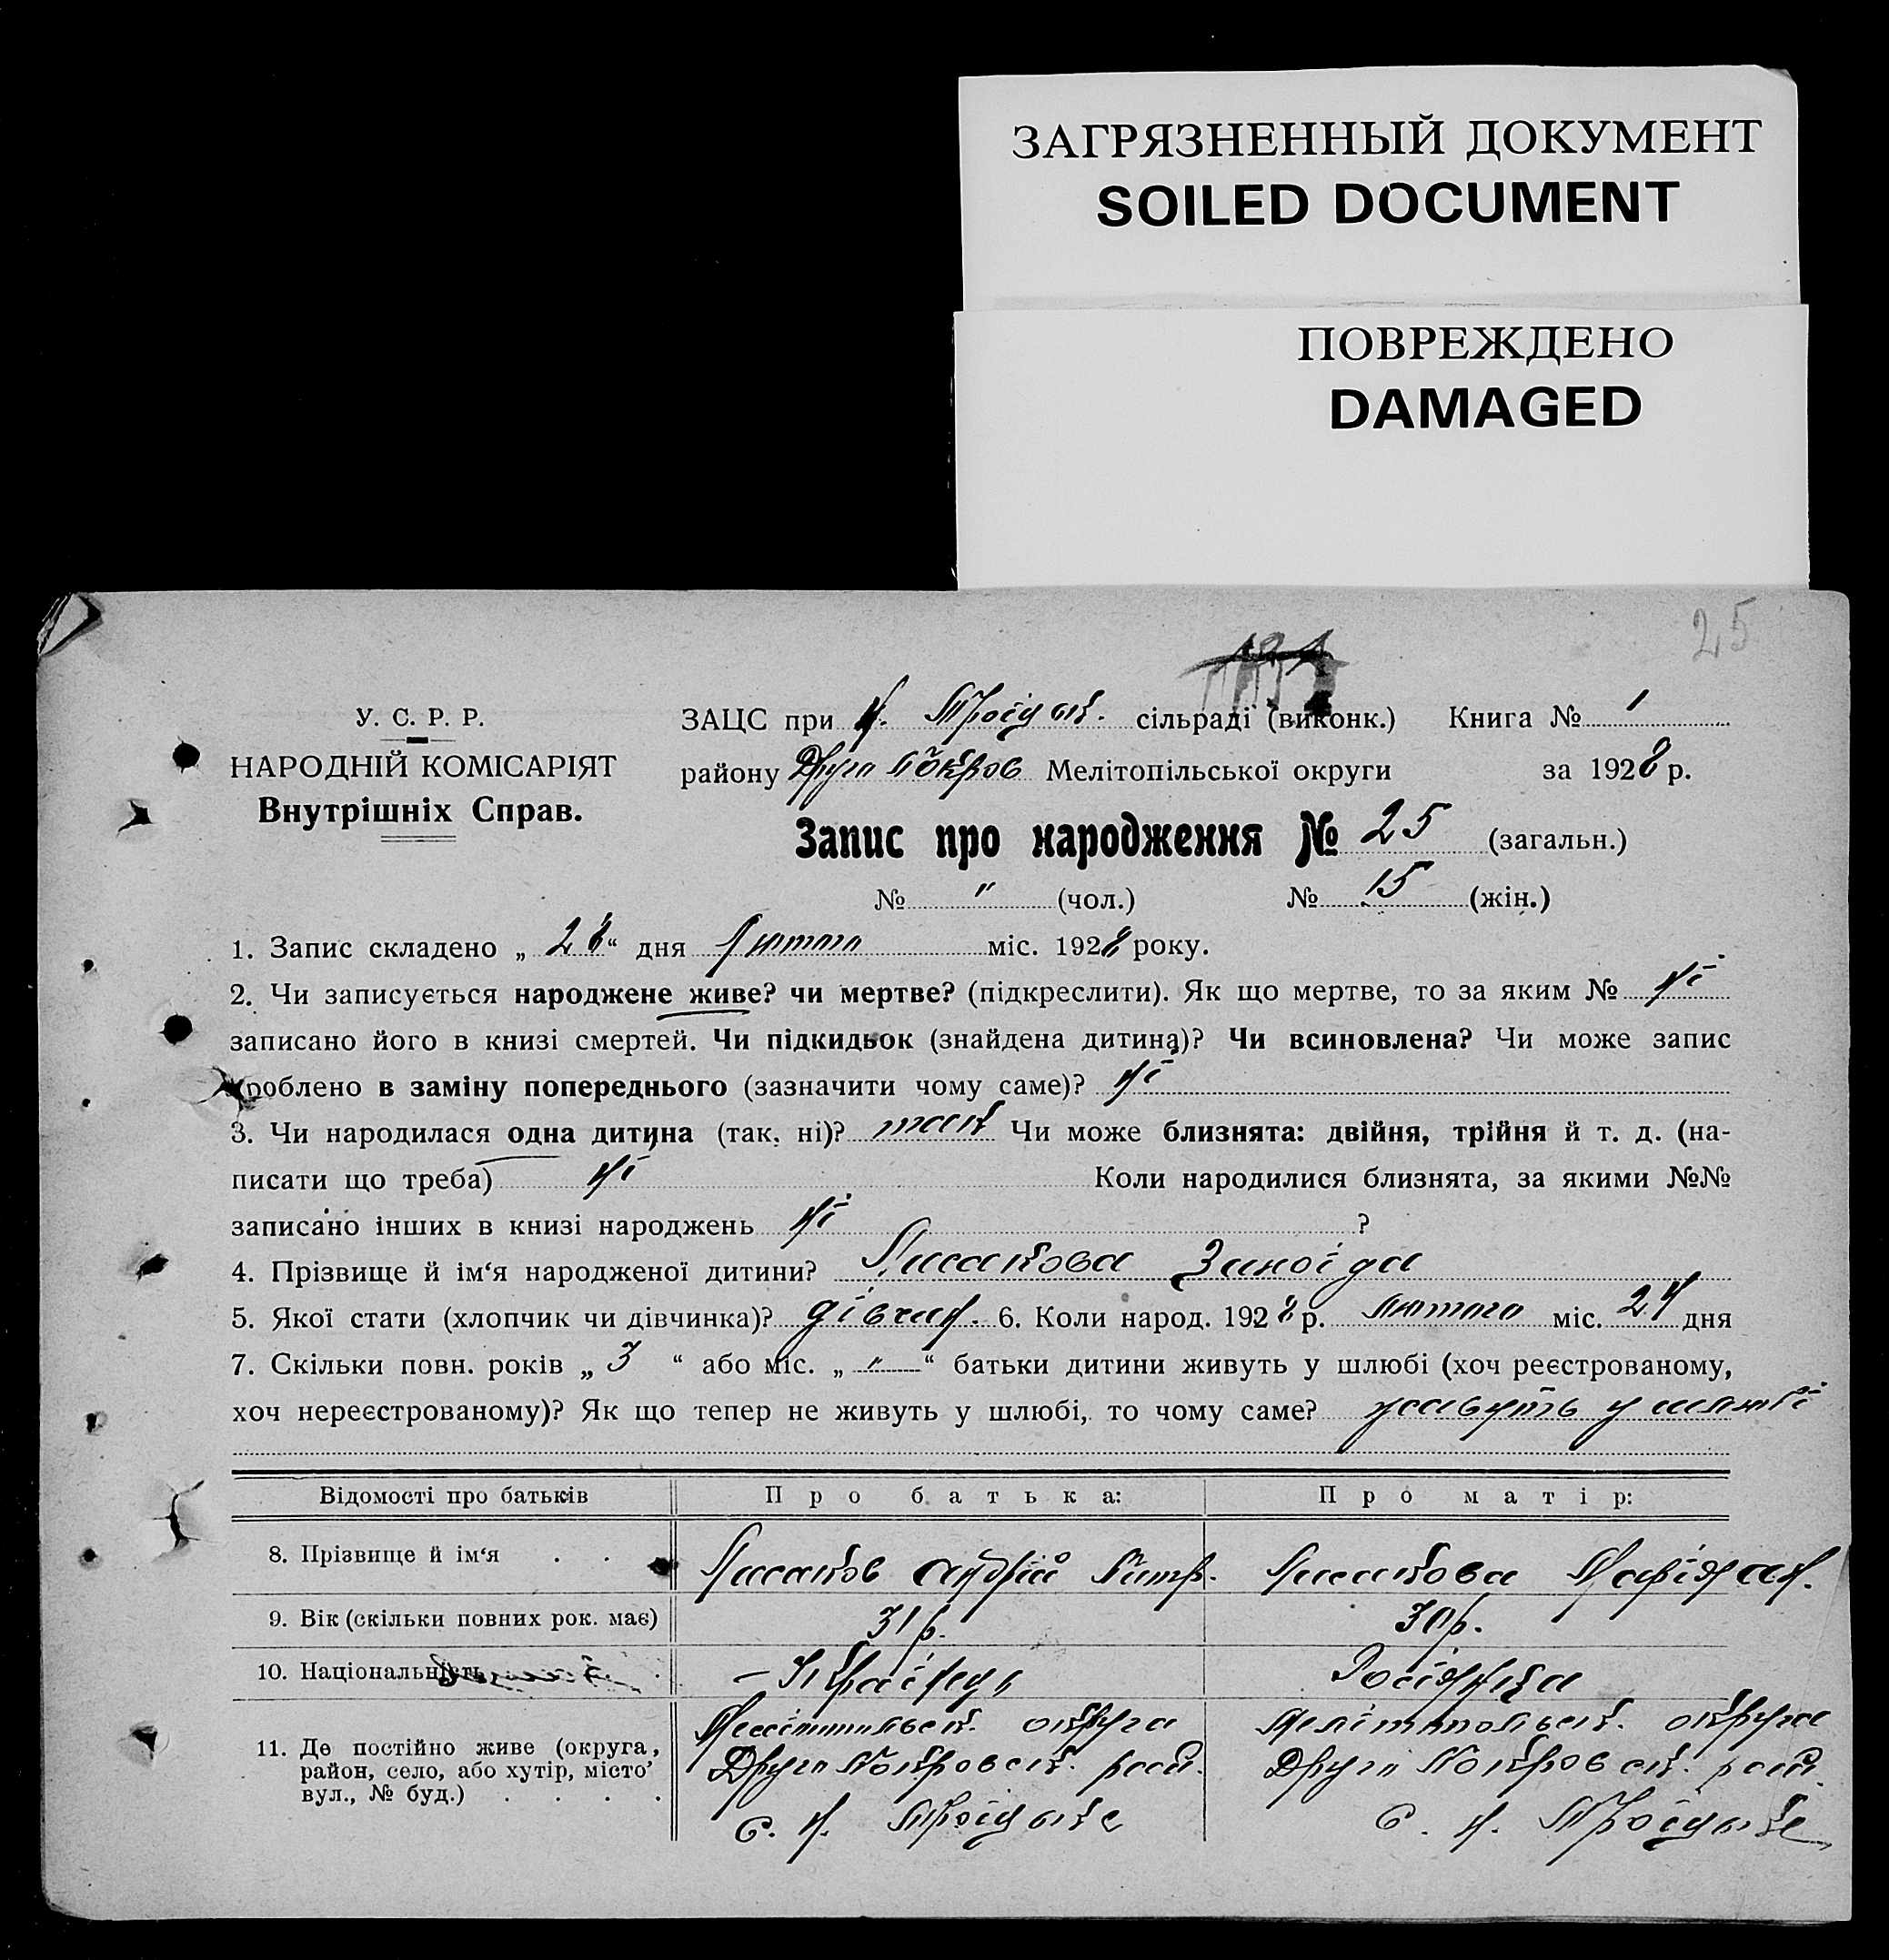 ЗАГРЯЗНЕННЫЙ ДОКУМЕНТ
SOILED DOCUMENT
ПОВРЕЖДЕНО
DAMAGED
25
У. С. Р. Р.
НАРОДНІЙ КОМІСАРІЯТ
Внутрішніх Справ.
ЗАЦС при Н. Троїцьк. сільраді (виконк.) Книга № 1
району Друго Покров Мелітопільської округи за 1928 р.
Запис про народження № 25 (загальн.)
№ " (чол.) № 15 (жін.)
1. Запис складено „ 28 “ дня Лютого міс. 1928 року.
2. Чи записується народжене живе? чи мертве? (підкреслити). Як що мертве, то за яким № ні
записано його в книзі смертей. Чи підкидьок (знайдена дитина)? Чи всиновлена? Чи може запис
зроблено в заміну попереднього (зазначити чому саме)? ні
3. Чи народилася одна дитина (так, ні)? так Чи може близнята: двійня, трійня й т. д. (на-
писати що треба) ні Коли народилися близнята, за якими №№
записано інших в книзі народжень ні ?
4. Прізвище й ім‘я народженої дитини? Лисакова Зиноїда
5. Якої стати (хлопчик чи дівчинка)? дівчин. 6. Коли народ. 1928 р. лютого міс. 24 дня
7. Скільки повн. років „ 3 “ або міс. „ " “ батьки дитини живуть у шлюбі (хоч реєстрованому,
хоч нереєстрованому)? Як що тепер не живуть у шлюбі, то чому саме? живуть у шлюбі
Відомості про батьків Про батька: Про матір:
8. Прізвище й ім‘я . . Лисаков Андрій Митр. Лисакова
9. Вік (скільки повних рок. має) 31 р. 30 р.
10. Національність Українець Росіянка
11. Де постійно живе (округа, район, село, або хутір, місто, вул., № буд.) . . . .
Мелітопільськ. округа
Друго Покровськ. рай.
с. Н. Троїцьке
Мелітопольськ. округа
Друго Покровськ. рай.
с. Н. Троїцьке